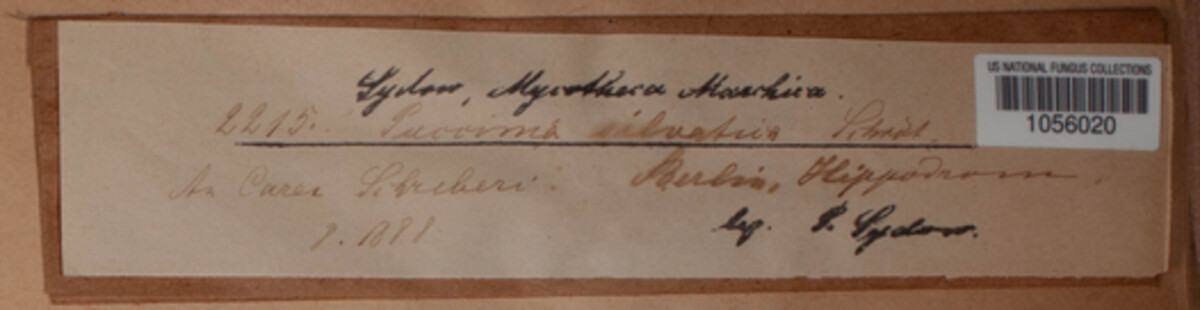 US NATIONAL FUNGUS COLLECTIONS
1056020
Sydow, Mycotheca Marchica.
2215. Puccinia silvatica Schröt.
An Carex Schreberi. Berlin, Hippodrom.
7. 1888 leg. P. Sydow.